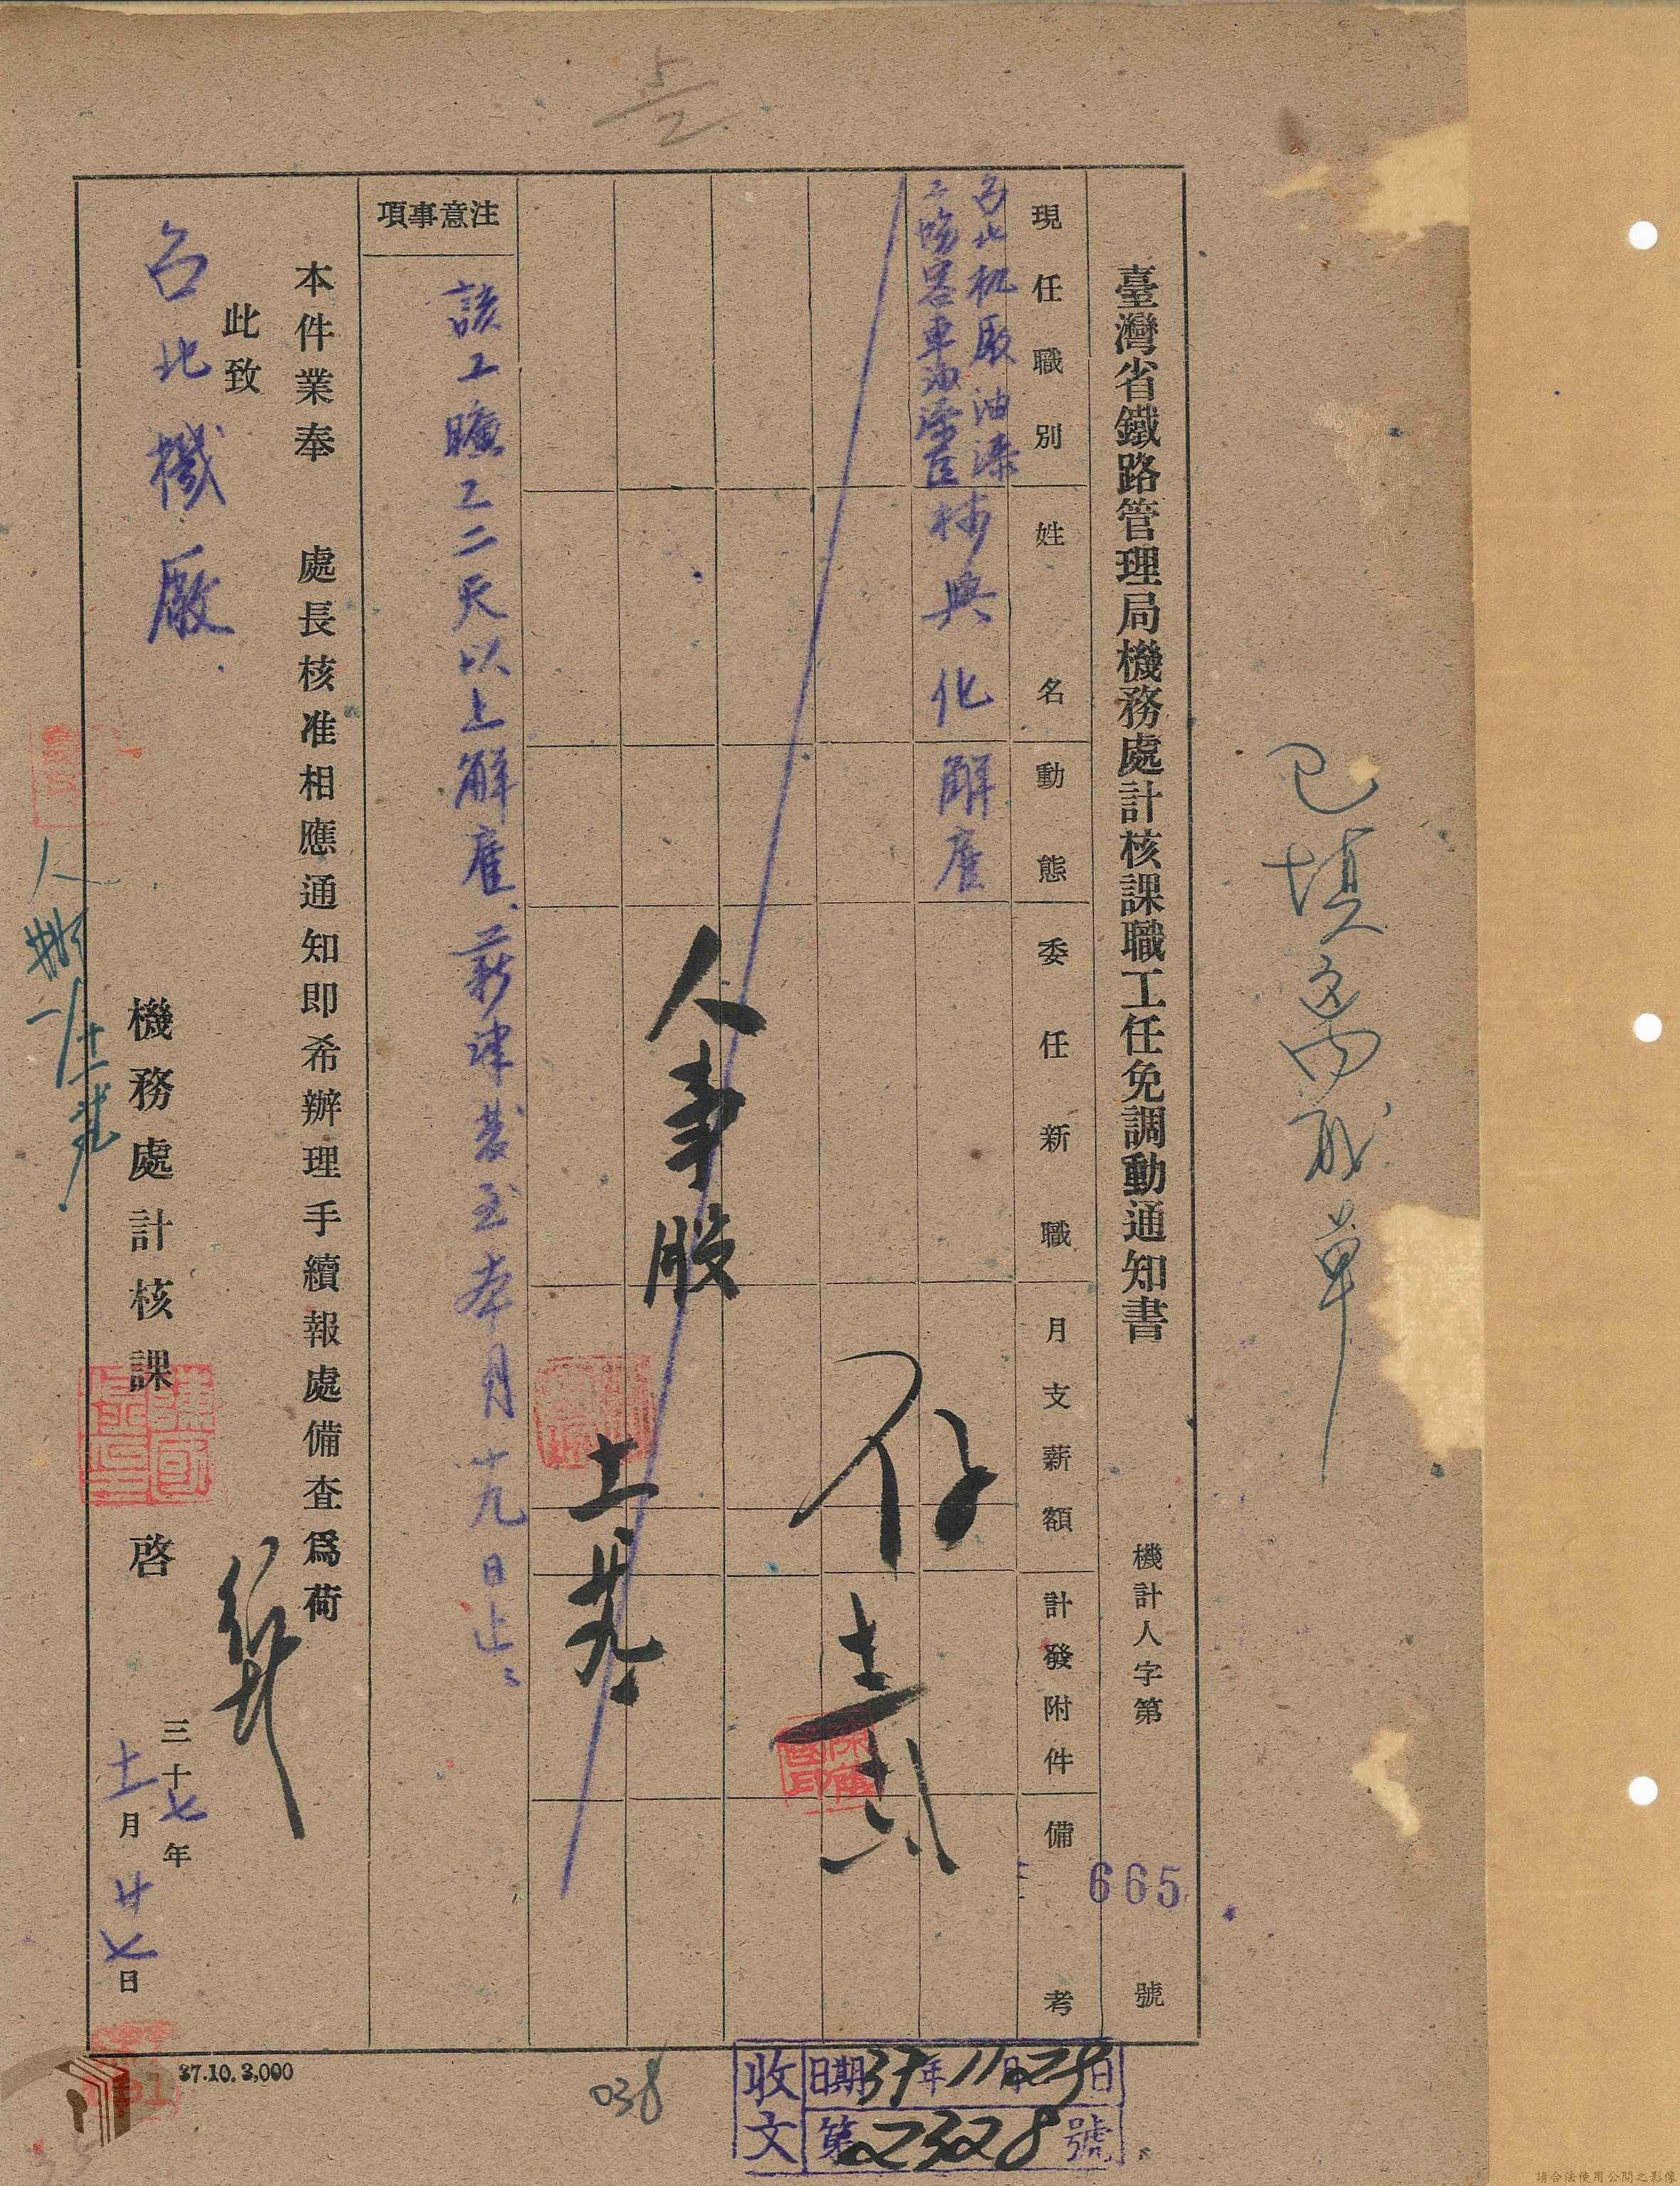 臺灣省鐵路管理局機務處計核課職工任免調動通知書
機計人字第 665 號
現任職別
姓名
動態
委任新職
月支薪額
計發附件
備考
台北机厰油漆
工塲客車油漆匠
林興化
解雇
人事股
十一 廿九
注意事項
該工曠工二天以上解雇、薪津發至本月十九日止
本件業奉 處長核准相應通知即希辦理手續報處備查爲荷
此致
台北機廠
機務處計核課 啓
三十七年
十一月廿七日
已填
單
37.10.3,000
038
收文
日期37年11月29日
第2328號
請合法使用公開之影像